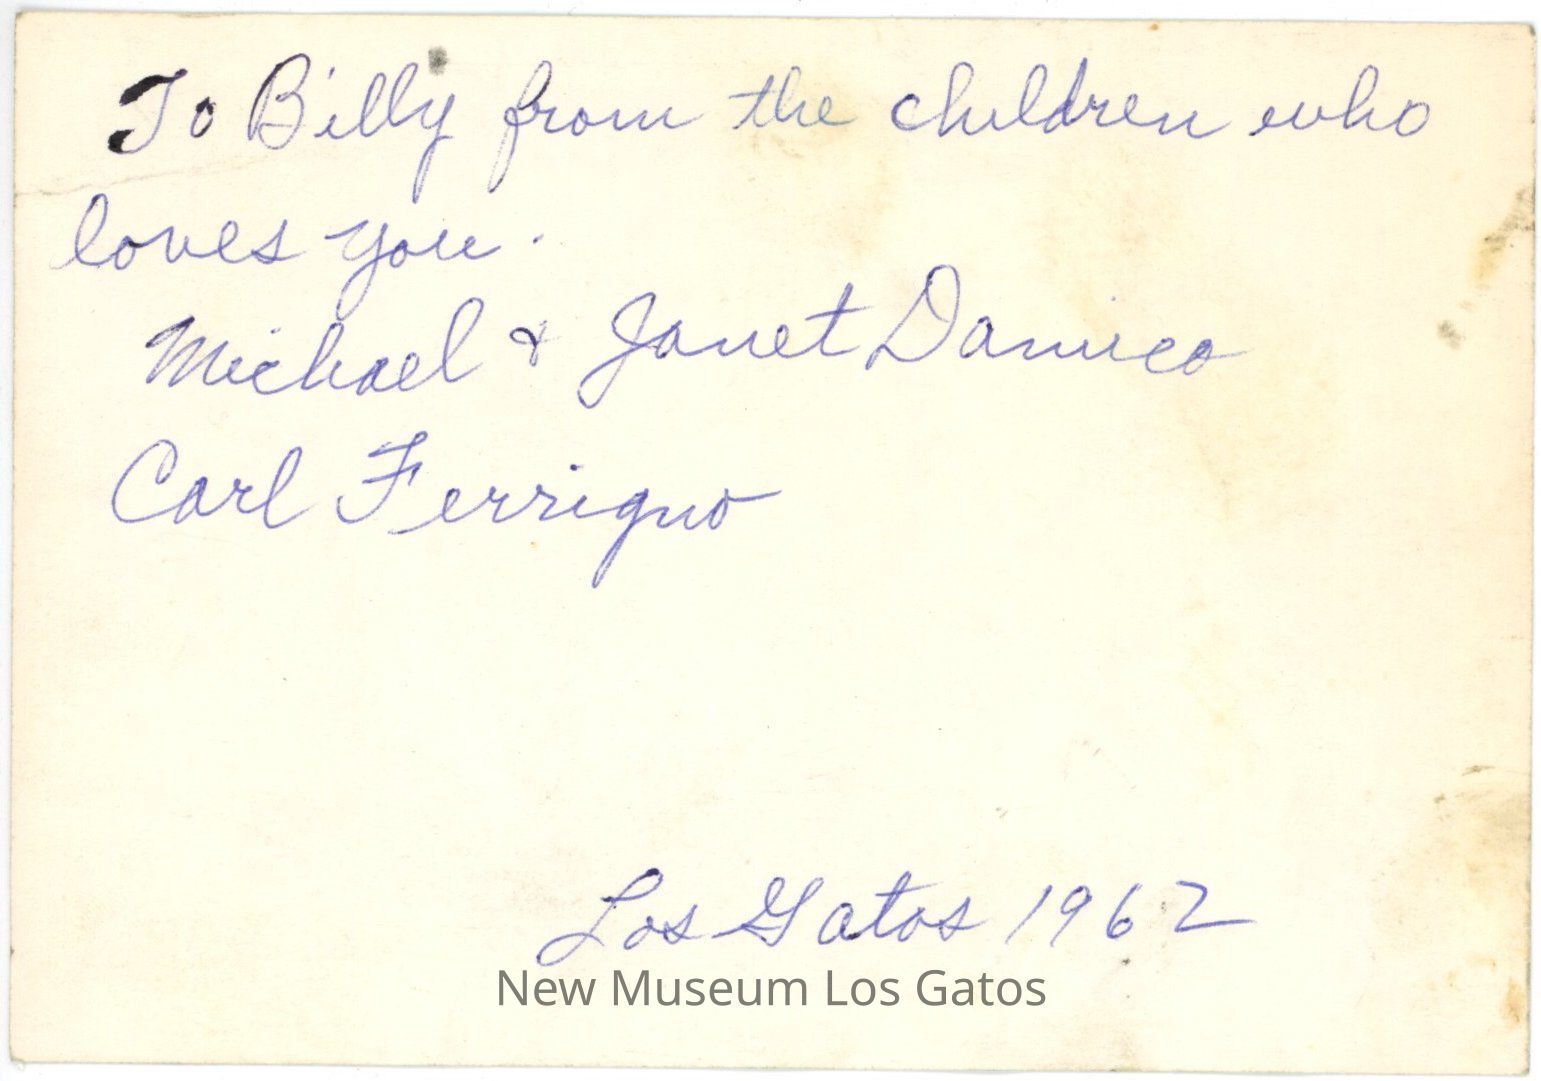 To Billy from the children who
loves you.
Michael & Janet Damico
Carl Ferrigno
Los Gatos 1962
New Museum Los Gatos